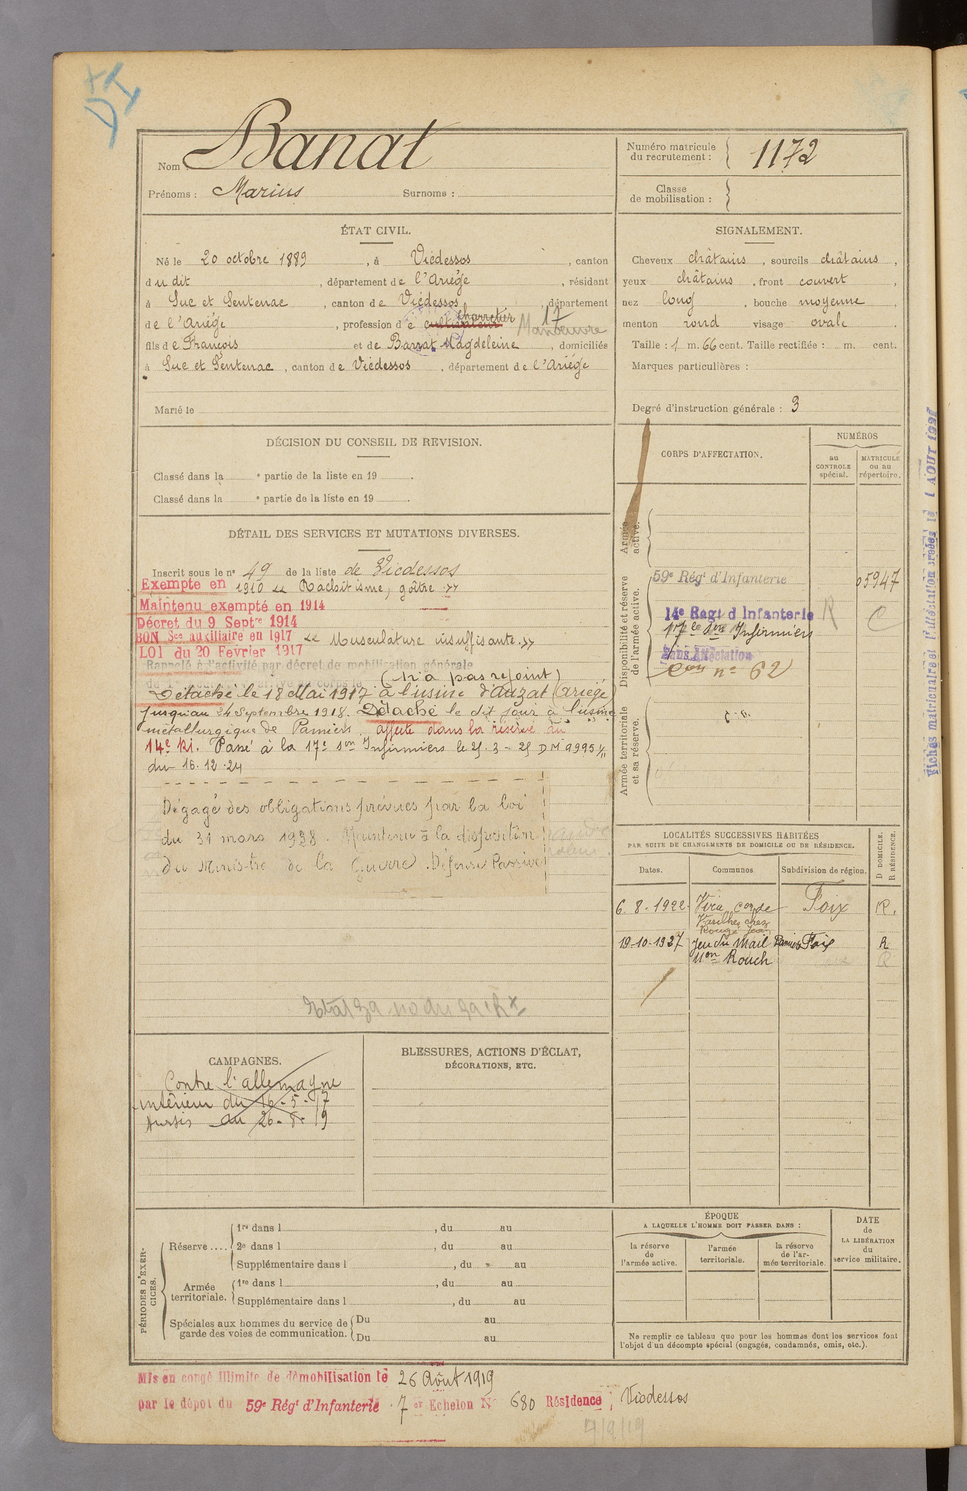 Nom Banat
Prénoms : Marius Surnoms :
Numéro matricule du recrutement : 1172
Classe de mobilisation :
ÉTAT CIVIL.
Né le 20 octobre 1889, à Vicdessos, canton
du dit, département de l'Ariège, résidant
à Suc et Sentenac, canton de Vicdessos, département
de l'Ariège, profession de cultivateur charretier 17 Manœuvre
fils de François et de Barrat Magdeleine, domiciliés
à Suc et Sentenac, canton de Vicdessos, département de l'Ariège
Marié le
SIGNALEMENT.
Cheveux châtains, sourcils châtains,
yeux châtains, front couvert,
nez long, bouche moyenne,
menton rond visage ovale.
Taille : 1 m. 66 cent. Taille rectifiée : m. cent.
Marques particulières :
Degré d'instruction générale : 3
DÉCISION DU CONSEIL DE REVISION.
Classé dans la e partie de la liste en 19 .
Classé dans la e partie de la liste en 19 .
DÉTAIL DES SERVICES ET MUTATIONS DIVERSES.
Inscrit sous le n° 49 de la liste de Vicdessos
Exempté en 1910 « Rachitisme, goître »
Maintenu exempté en 1914
Décret du 9 Septre 1914
BON Sce auxiliaire en 1917 « Musculature insuffisante »
LOI du 20 Février 1917
Rappelé à l'activité par décret de mobilisation générale
(n'a pas rejoint)
Détaché le 18 Mai 1917 à l'usine d'Auzat (Ariège
jusqu'au 24 Septembre 1918. Détaché le dit jour à l'usine
métallurgique de Pamiers. affecté dans la réserve du
14e RI. Passé à la 17e son Infirmiers le 25.3-25 DM 9995 1/11
du 16.12.24
Dégagé des obligations prévues par la loi
du 31 mars 1928. Maintenu à la disposition
du Ministre de la Guerre. Défense Passive
CORPS D'AFFECTATION.
NUMÉROS
au CONTROLE spécial.
MATRICULE ou au répertoire.
Armée active.
Disponibilité et réserve de l'armée active.
59e Régt d'Infanterie 05947
14e Regt d'Infanterie R C
17e son Infirmiers
Sans Affectation
n° 62
Armée territoriale et sa réserve.
LOCALITÉS SUCCESSIVES HABITÉES
PAR SUITE DE CHANGEMENTS DE DOMICILE OU DE RÉSIDENCE.
Dates. Communes Subdivision de région. D DOMICILE. R RÉSIDENCE.
6.8.1922 Foix R.
Varilhes chez
Rougé Jean
19-10-1927 Jeu du Mail Pamiers Foix R
Mon Rouch
CAMPAGNES.
Contre l'allemagne
intérieur du 16-5-17
sursis au 26-8-19
BLESSURES, ACTIONS D'ÉCLAT,
DÉCORATIONS, ETC.
PÉRIODES D'EXERCICES.
Réserve .... 1re dans l , du au
2e dans l , du au
Supplémentaire dans l , du au
Armée territoriale. 1re dans l , du au
Supplémentaire dans l , du au
Spéciales aux hommes du service de garde des voies de communication. Du au
Du au
ÉPOQUE
A LAQUELLE L'HOMME DOIT PASSER DANS :
la réserve de l'armée active.
l'armée territoriale.
la réserve de l'armée territoriale.
DATE de LA LIBÉRATION du service militaire.
Ne remplir ce tableau que pour les hommes dont les services font
l'objet d'un décompte spécial (engagés, condamnés, omis, etc.).
Mis en congé illimité de démobilisation le 26 Août 1919
par le dépôt du 59e Régt d'Infanterie 7e Echelon N° 680 Résidence Vicdessos